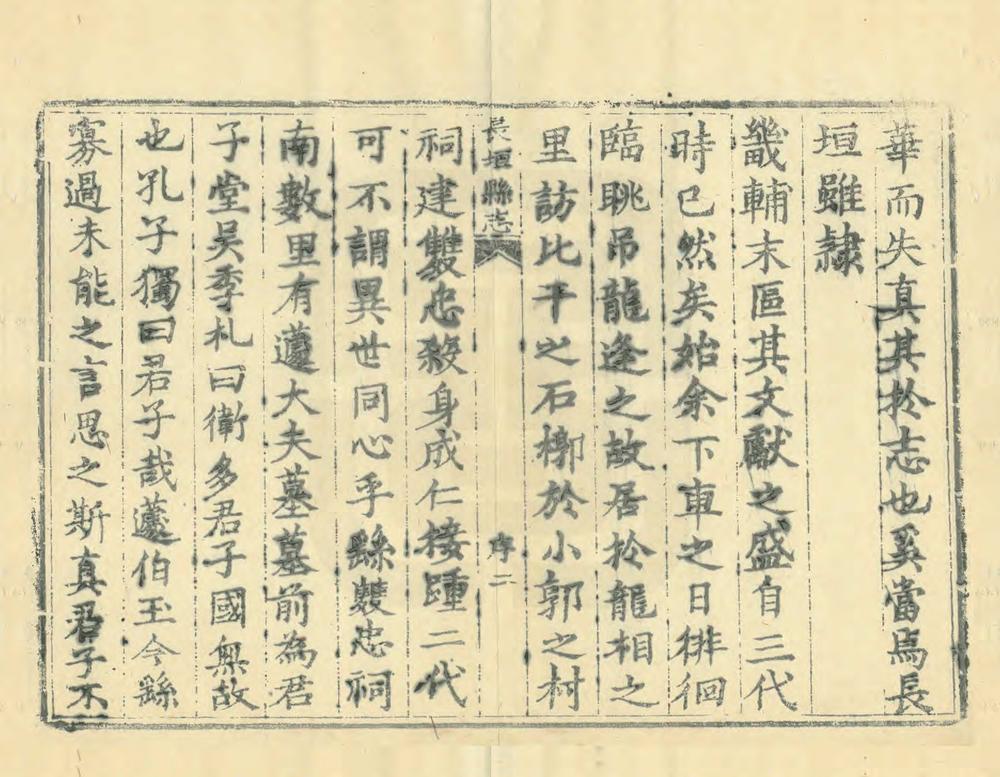 華而失真其扵志也奚當焉長
垣雖隷
畿輔末區其文獻之盛自三代
時已然矣始余下車之日徘徊
臨眺吊龍逄之故居扵龍相之
里訪比干之石槨於小郭之村
長垣縣志
序二
祠建雙忠殺身成仁接踵二代
可不謂異世同心乎縣䨇忠祠
南數里有蘧大夫墓墓前為君
子堂吴季札曰衛多君子國無故
也孔子獨曰君子哉蘧伯玉今繇
寡過未能之言思之斯真君子不